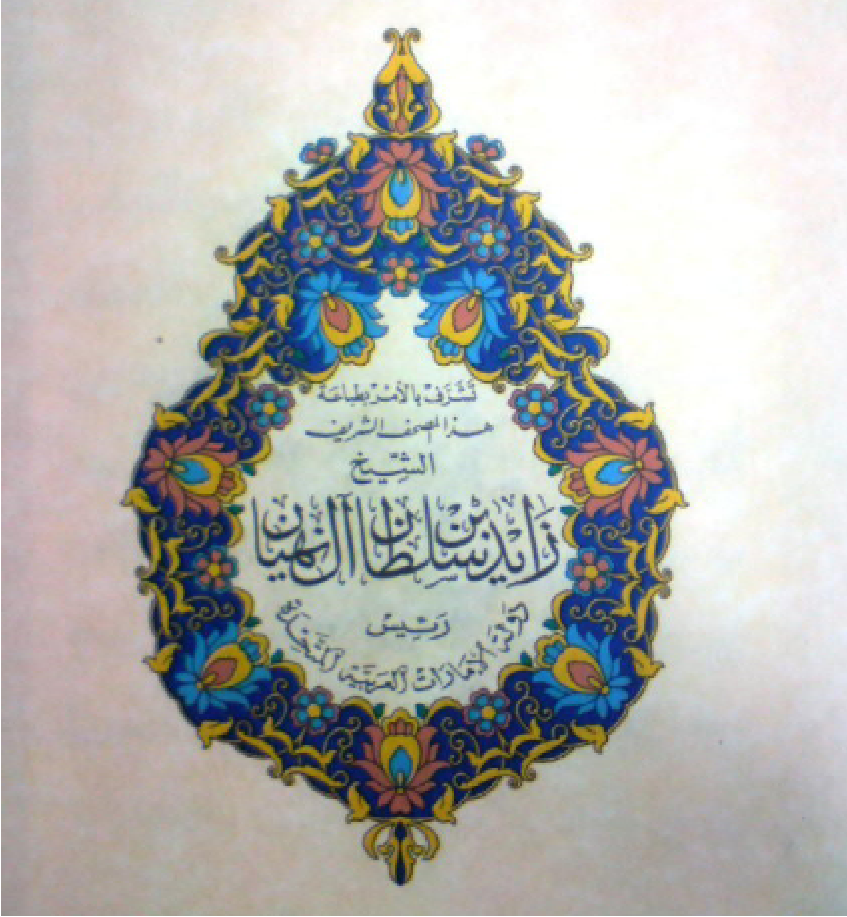 تشرف بالأمر بطباعة
هذا المصحف الشريف
الشيخ
زايد بن سلطان آل نهيان
رئيس
دولة الإمارات العربية المتحدة